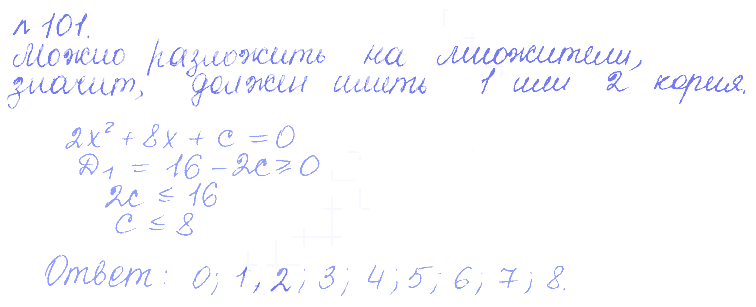 № 101.
Можно разложить на множители,
значит, должен иметь 1 или 2 корня.
2x² + 8x + c = 0
D₁ = 16 - 2c ≥ 0
2c ≤ 16
c ≤ 8
Ответ: 0; 1, 2; 3; 4; 5; 6; 7; 8.